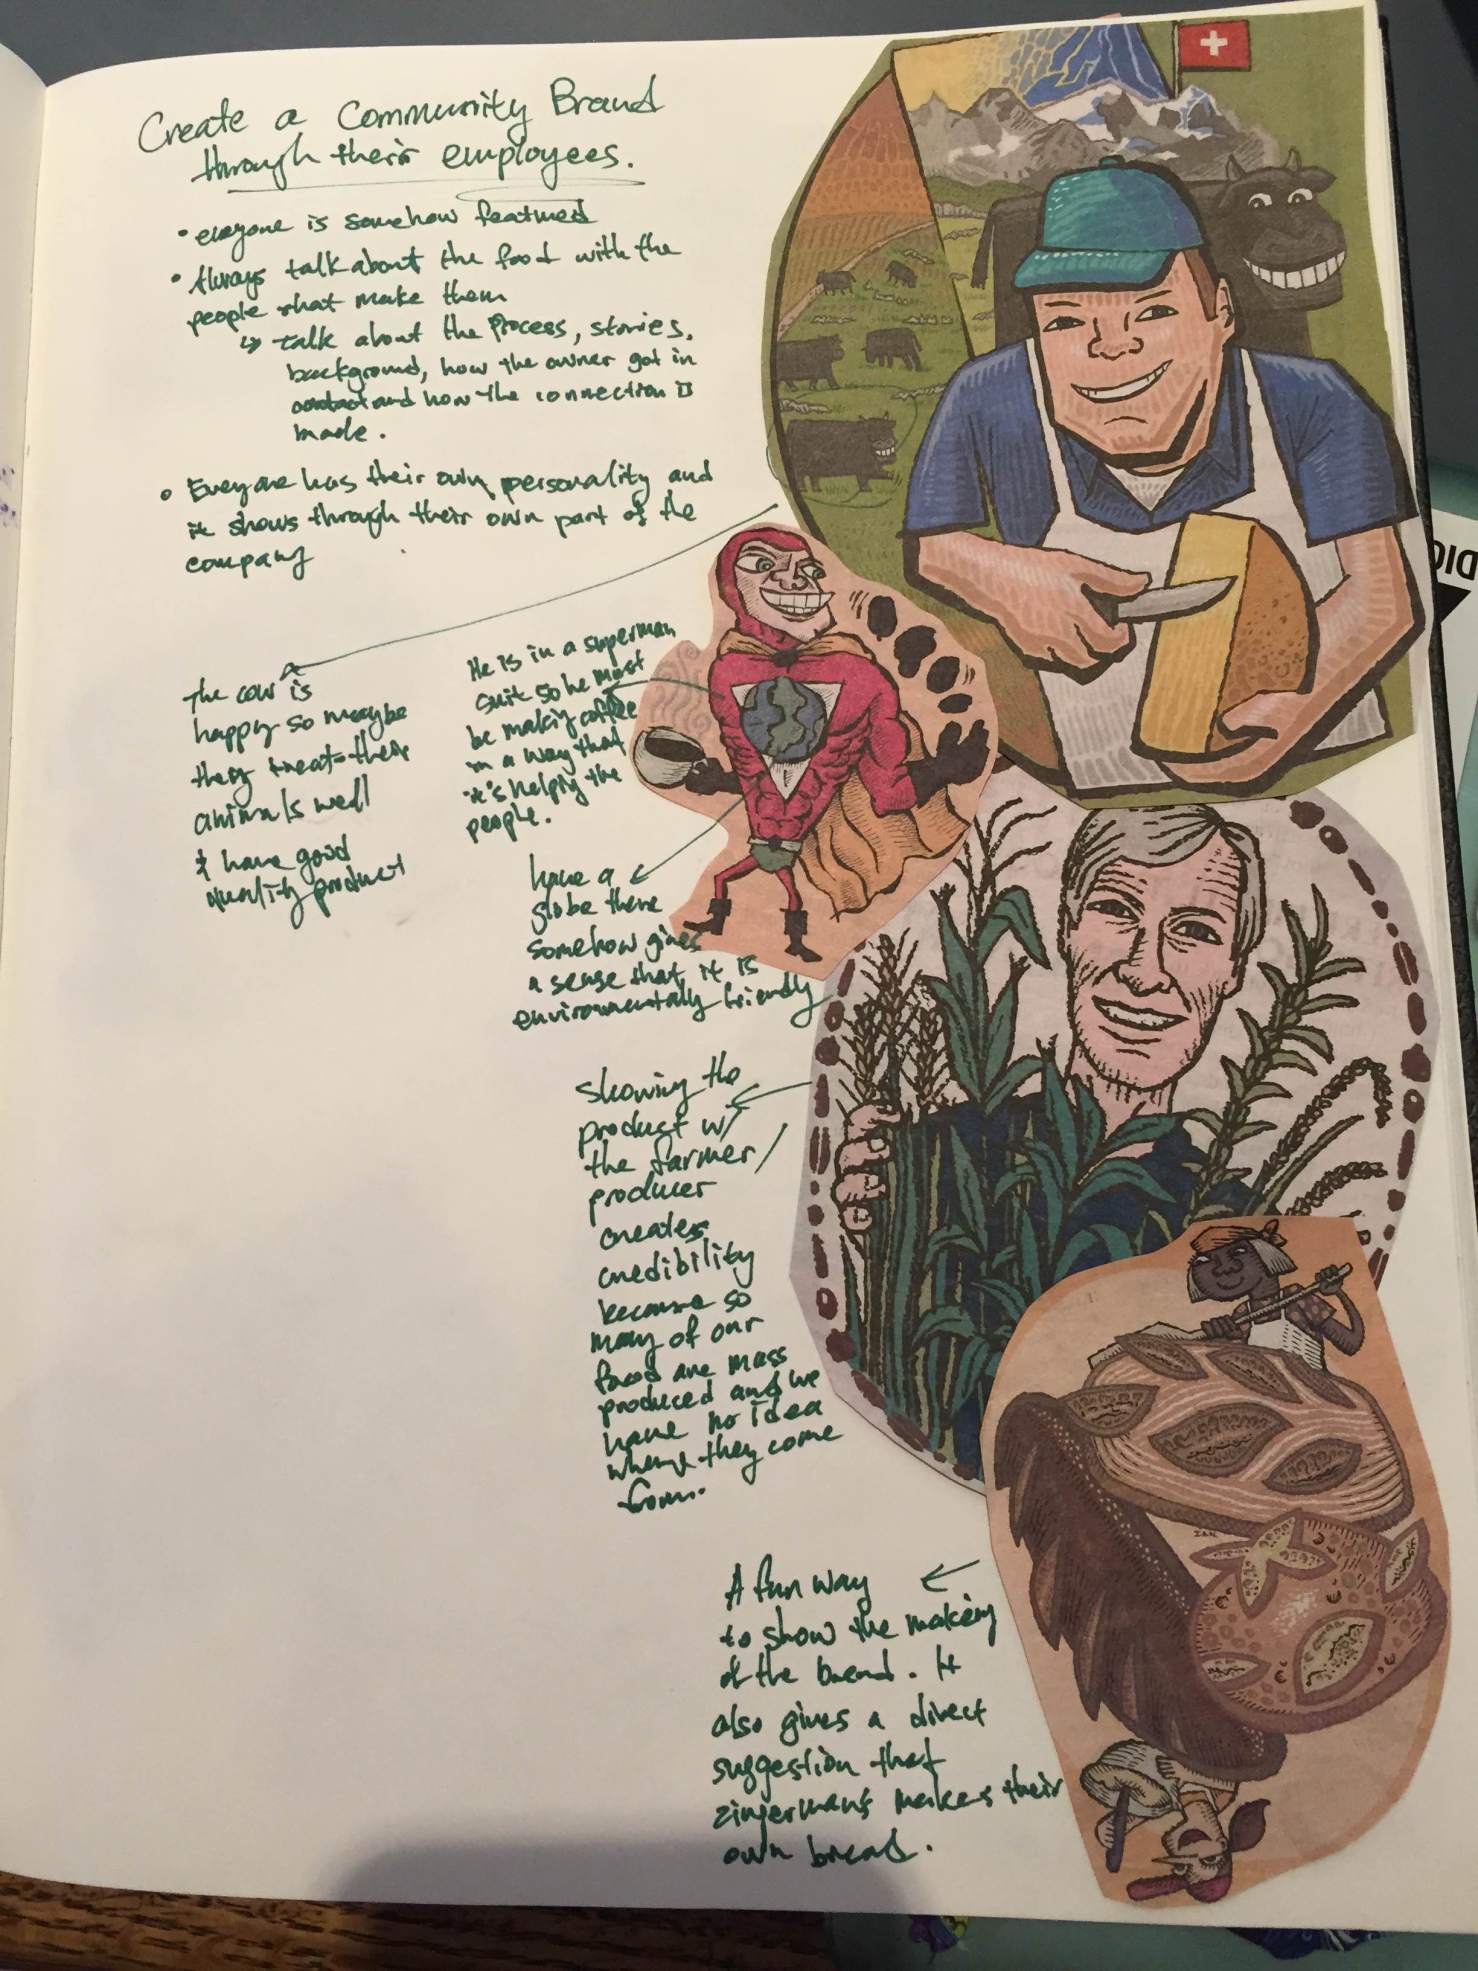 Create a Community Brand
through their employees.
• everyone is somehow featured
• Always talk about the food with the
people that make them
↳ talk about the process, stories,
background, how the owner got in
contact and how the connection is
made.
• Everyone has their own personality and
it shows through their own part of the
company
The cow is
happy so maybe
they treat their
animals well
& have good
quality product
He is in a superman
suit so he must
be making coffee
in a way that
it's helping the
people.
have a
globe there
somehow gives
a sense that it is
environmentally friendly
showing the
product w/
the farmer/
producer
creates
credibility
because so
many of our
food are mass
produced and we
have no idea
where they come
from.
A fun way
to show the making
of the bread. It
also gives a direct
suggestion that
zingerman's makes their
own bread.
DIC